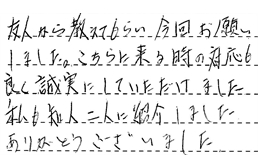 友人から教えてもらい今回お願い
しました。こちらに来る時の対応も
良く誠実にしていただけました
私も知人二人に紹介しました
ありがとうございました